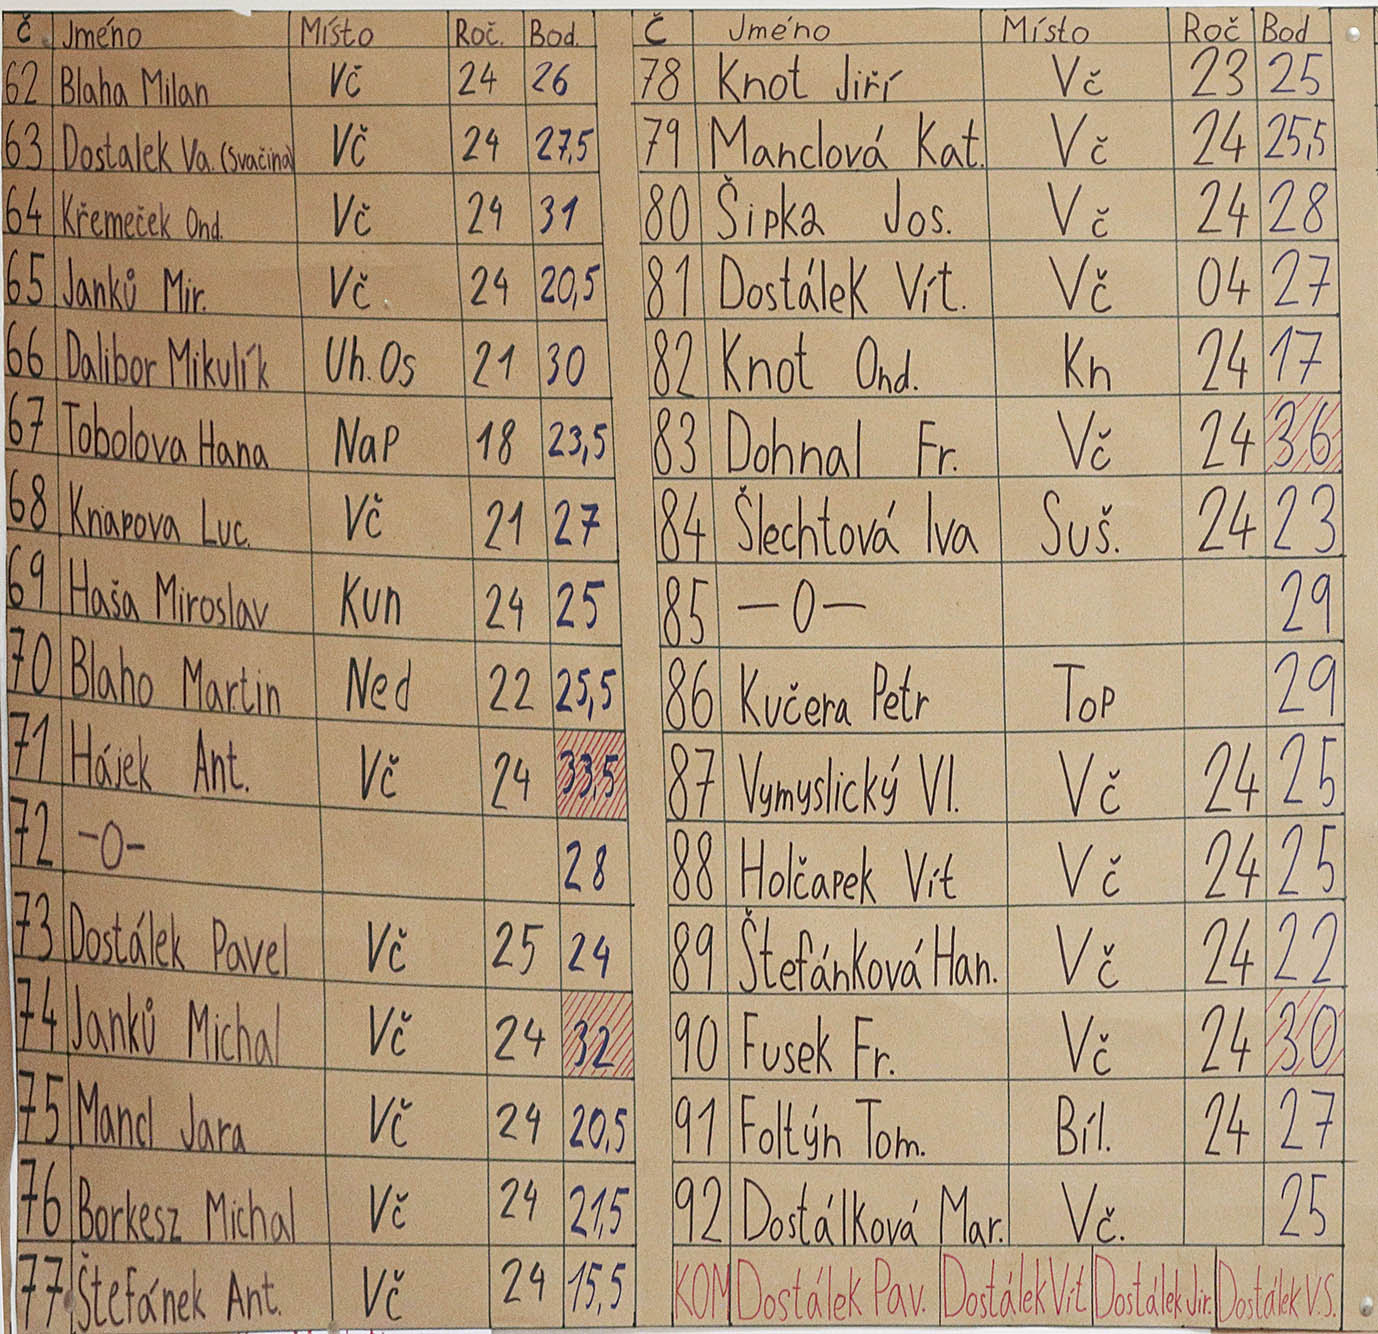 Č Jméno Místo Roč. Bod.
62 Blaha Milan Vč 24 26
63 Dostalek Va. (Svačina) Vč 24 27,5
64 Křemeček Ond. Vč 24 31
65 Janků Mir. Vč 24 20,5
66 Dalibor Mikulík Uh. Os 21 30
67 Tobolova Hana Nap 18 23,5
68 Knapova Luc. Vč 21 27
69 Haša Miroslav Kun 24 25
70 Blaho Martin Ned 22 25,5
71 Hájek Ant. Vč 24 33,5
72 -0- 28
73 Dostálek Pavel Vč 25 24
74 Janků Michal Vč 24 32
75 Mancl Jara Vč 24 20,5
76 Borkesz Michal Vč 24 21,5
77 Štefánek Ant. Vč 24 15,5
Č Jméno Místo Roč Bod
78 Knot Jiří Vč 23 25
79 Manclová Kat. Vč 24 25,5
80 Šipka Jos. Vč 24 28
81 Dostálek Vít. Vč 04 27
82 Knot Ond. Kn 24 17
83 Dohnal Fr. Vč 24 36
84 Šlechtová Iva Suš. 24 23
85 -0- 29
86 Kučera Petr Top 29
87 Vymyslický Vl. Vč 24 25
88 Holčapek Vít Vč 24 25
89 Štefánková Han. Vč 24 22
90 Fusek Fr. Vč 24 30
91 Foltýn Tom. Bíl. 24 27
92 Dostálková Mar. Vč. 25
KOM Dostálek Pav. Dostálek Vít Dostálek Jir. Dostálek V.S.